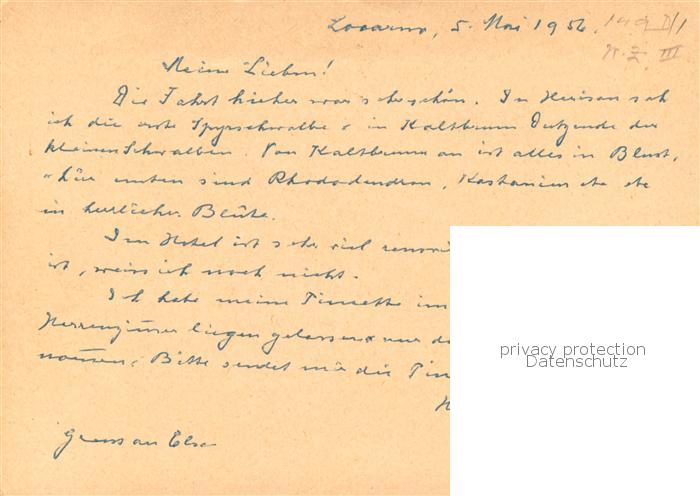 Locarno, 5. Mai 1956
Meine Lieben!
Die Fahrt hieher war sehr schön. In Herisau sah
ich die erste Spyrschwalbe & in Kaltbrunn Dutzende der
kleinen Schwalben. Von Kaltbrunn an ist alles in Blust,
hier unten sind Rhododendron, Kastanien etc etc
in herrlicher Blüte.
Im Hotel ist sehr viel
ist, weiss ich noch nicht.
Ich habe meine Pincette im
Herrenzimmer liegen gelassen & nur
nommen. Bitte sendet mir die Pin
Gruss an Elsa
privacy protection
Datenschutz